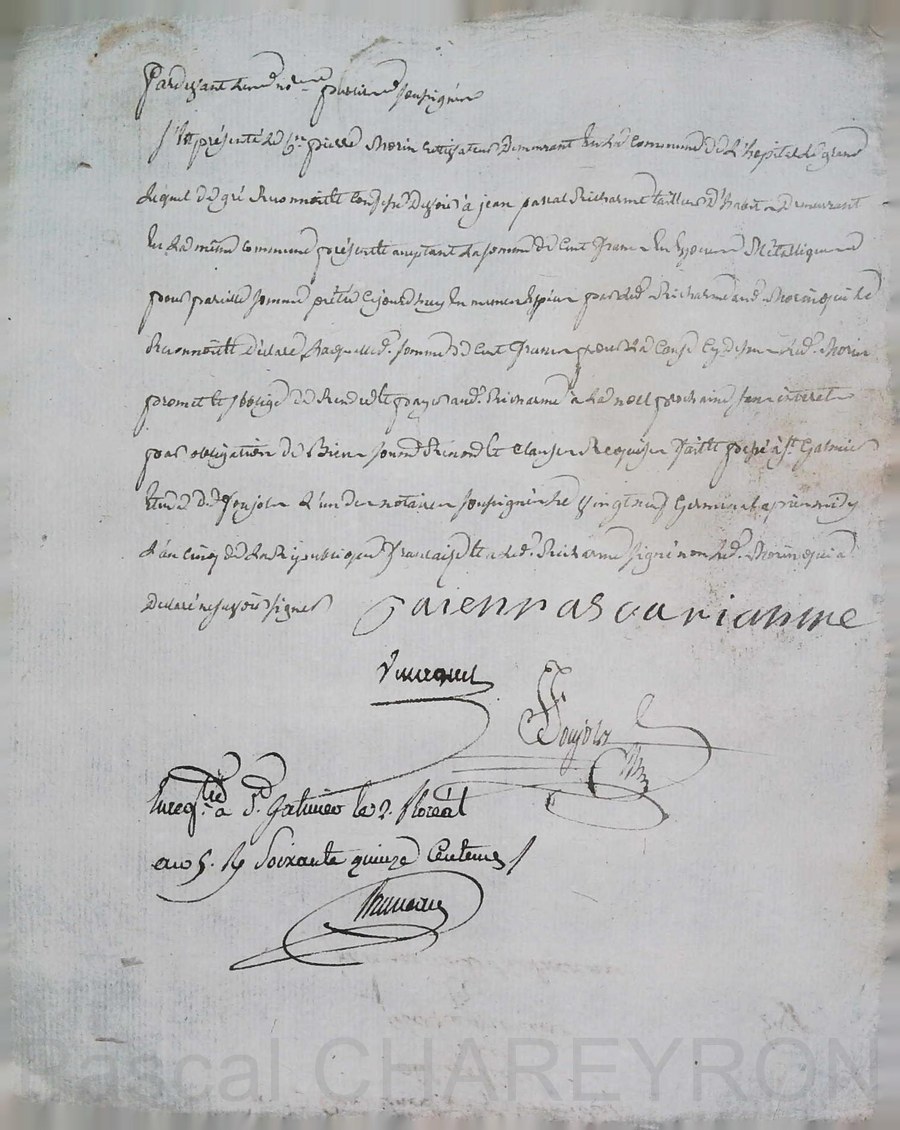 Pardevant les no.res publics soussignés
S'est présenté le C.en pierre Morin cultivateur demeurant en la commune de L'hopital le grand
Lequel de gré Reconnoitt devoir à jean pascal Richarme tailleur d'habits demeurant
En la même commune présent acceptant La somme de Cent francs En Espèces Métalliques
pour pareille somme prêtée cejourdhuy En mêmes Espèces par led. Richarme aud. Morin qui le
Reconnoitt déclare, Laquelle d. somme de Cent francs pour la Cause Cy dessus led. Morin
promet et s'oblige de Rendre et payer aud. Richarme à La noel prochaine sans interet
par obligation de Biens soum. Renon. et Clauses Requises fait et passé à S.t Galmier
Etude de Poujol L'un des notaires soussignés Le vingt neuf Germinal après midy
L'an cinq de La République française et a led. Richarme signé non led. Morin qui a
Déclaré ne savoir signer
Poujol
Enreg.tré a S.t Galmier le 2. floréal
an 5. R Soixante quinze Centimes
Pascal CHAREYRON